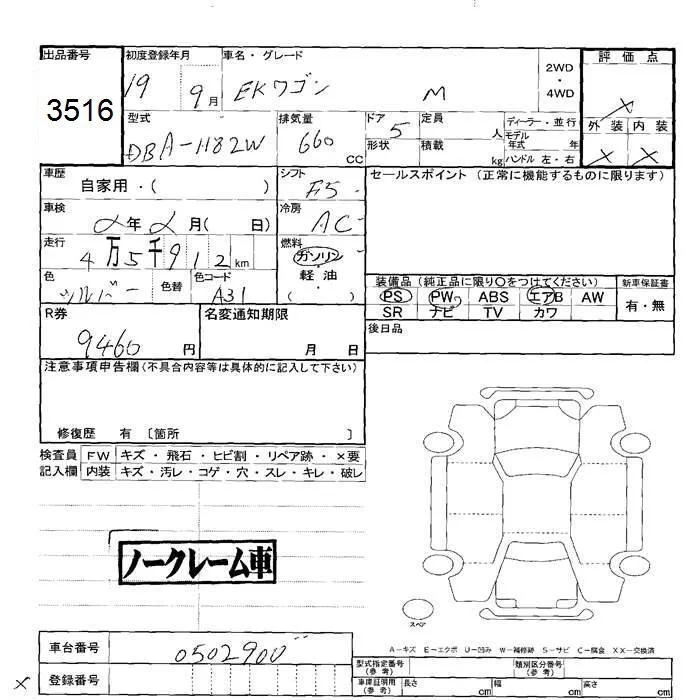 出品番号
3516
初度登録年月 車名・グレード
19 9月 EKワゴン M
2WD
・
4WD
評価点
X
外装 内装
X X
型式 排気量 ドア 定員 ディーラー・並行
DBA-H82W 660 CC 5 人 モデル年式 年
形状 積載 kg ハンドル 左・右
車歴 シフト セールスポイント (正常に機能するものに限ります)
自家用・( ) F5
車検 冷房
2年2月( 日) AC
走行 燃料
4万5千912km ガソリン
軽油
( )
色 色替 色コード
シルバー A31
装備品(純正品に限り○をつけてください) 新車保証書
PS PW ABS エアB AW 有・無
SR ナビ TV カワ
R券 名変通知期限 後日品
9460円 月 日
注意事項申告欄(不具合内容等は具体的に記入して下さい)
修復歴 有 〔箇所 〕
検査員 FW キズ・飛石・ヒビ割・リペア跡・×要
記入欄 内装 キズ・汚レ・コゲ・穴・スレ・キレ・破レ
ノークレーム車
スペア
A-キズ E-エクボ U-凹み W-補修跡 S-サビ C-腐食 XX-交換済
車台番号 0502900
型式指定番号(参考) 類別区分番号(参考)
X 登録番号
車庫証明用(参考) 長さ cm 幅 cm 高さ cm